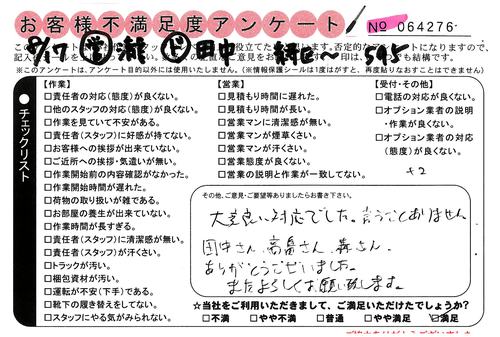 お客様不満足度アンケート
No 064276
8/17
田中
※このアンケートは、アンケート目的以外には使用いたしません。(※情報保護シールは1度がはすと、再度貼りなおすことはできません)
●チェックリスト
【作業】
□責任者の対応(態度)が良くない。
□他のスタッフの対応(態度)が良くない。
□作業を見ていて不安がある。
□責任者(スタッフ)に好感が持てない。
□お客様への挨拶が出来ていない。
□ご近所への挨拶・気遣いが無い。
□作業開始前の内容確認がなかった。
□作業開始時間が遅れた。
□荷物の取り扱いが雑である。
□お部屋の養生が出来ていない。
□作業時間が長すぎる。
□責任者(スタッフ)に清潔感が無い。
□責任者(スタッフ)が汗くさい。
□トラックが汚い。
□梱包資材が汚い。
□運転が不安(下手)である。
□靴下の履き替えをしてない。
□スタッフにやる気がみられない。
【営業】
□見積もり時間に遅れた。
□見積もり時間が長い。
□営業マンに清潔感が無い。
□営業マンが煙草くさい。
□営業マンが汗くさい。
□営業態度が良くない。
□営業の説明と作業が一致してない。
【受付・その他】
□電話の対応が良くない。
□オプション業者の説明
・作業が良くない。
□オプション業者の対応
(態度)が良くない。
+2
その他、ご意見・ご要望等ありましたらお書き下さい。
大変良い対応でした。言うことありません
田中さん、高畠さん、森さん
ありがとうございました。
またよろしくお願い致します。
☆当社をご利用いただきまして、ご満足いただけたでしょうか?
□不満 □やや不満 □普通 □やや満足 ☑満足